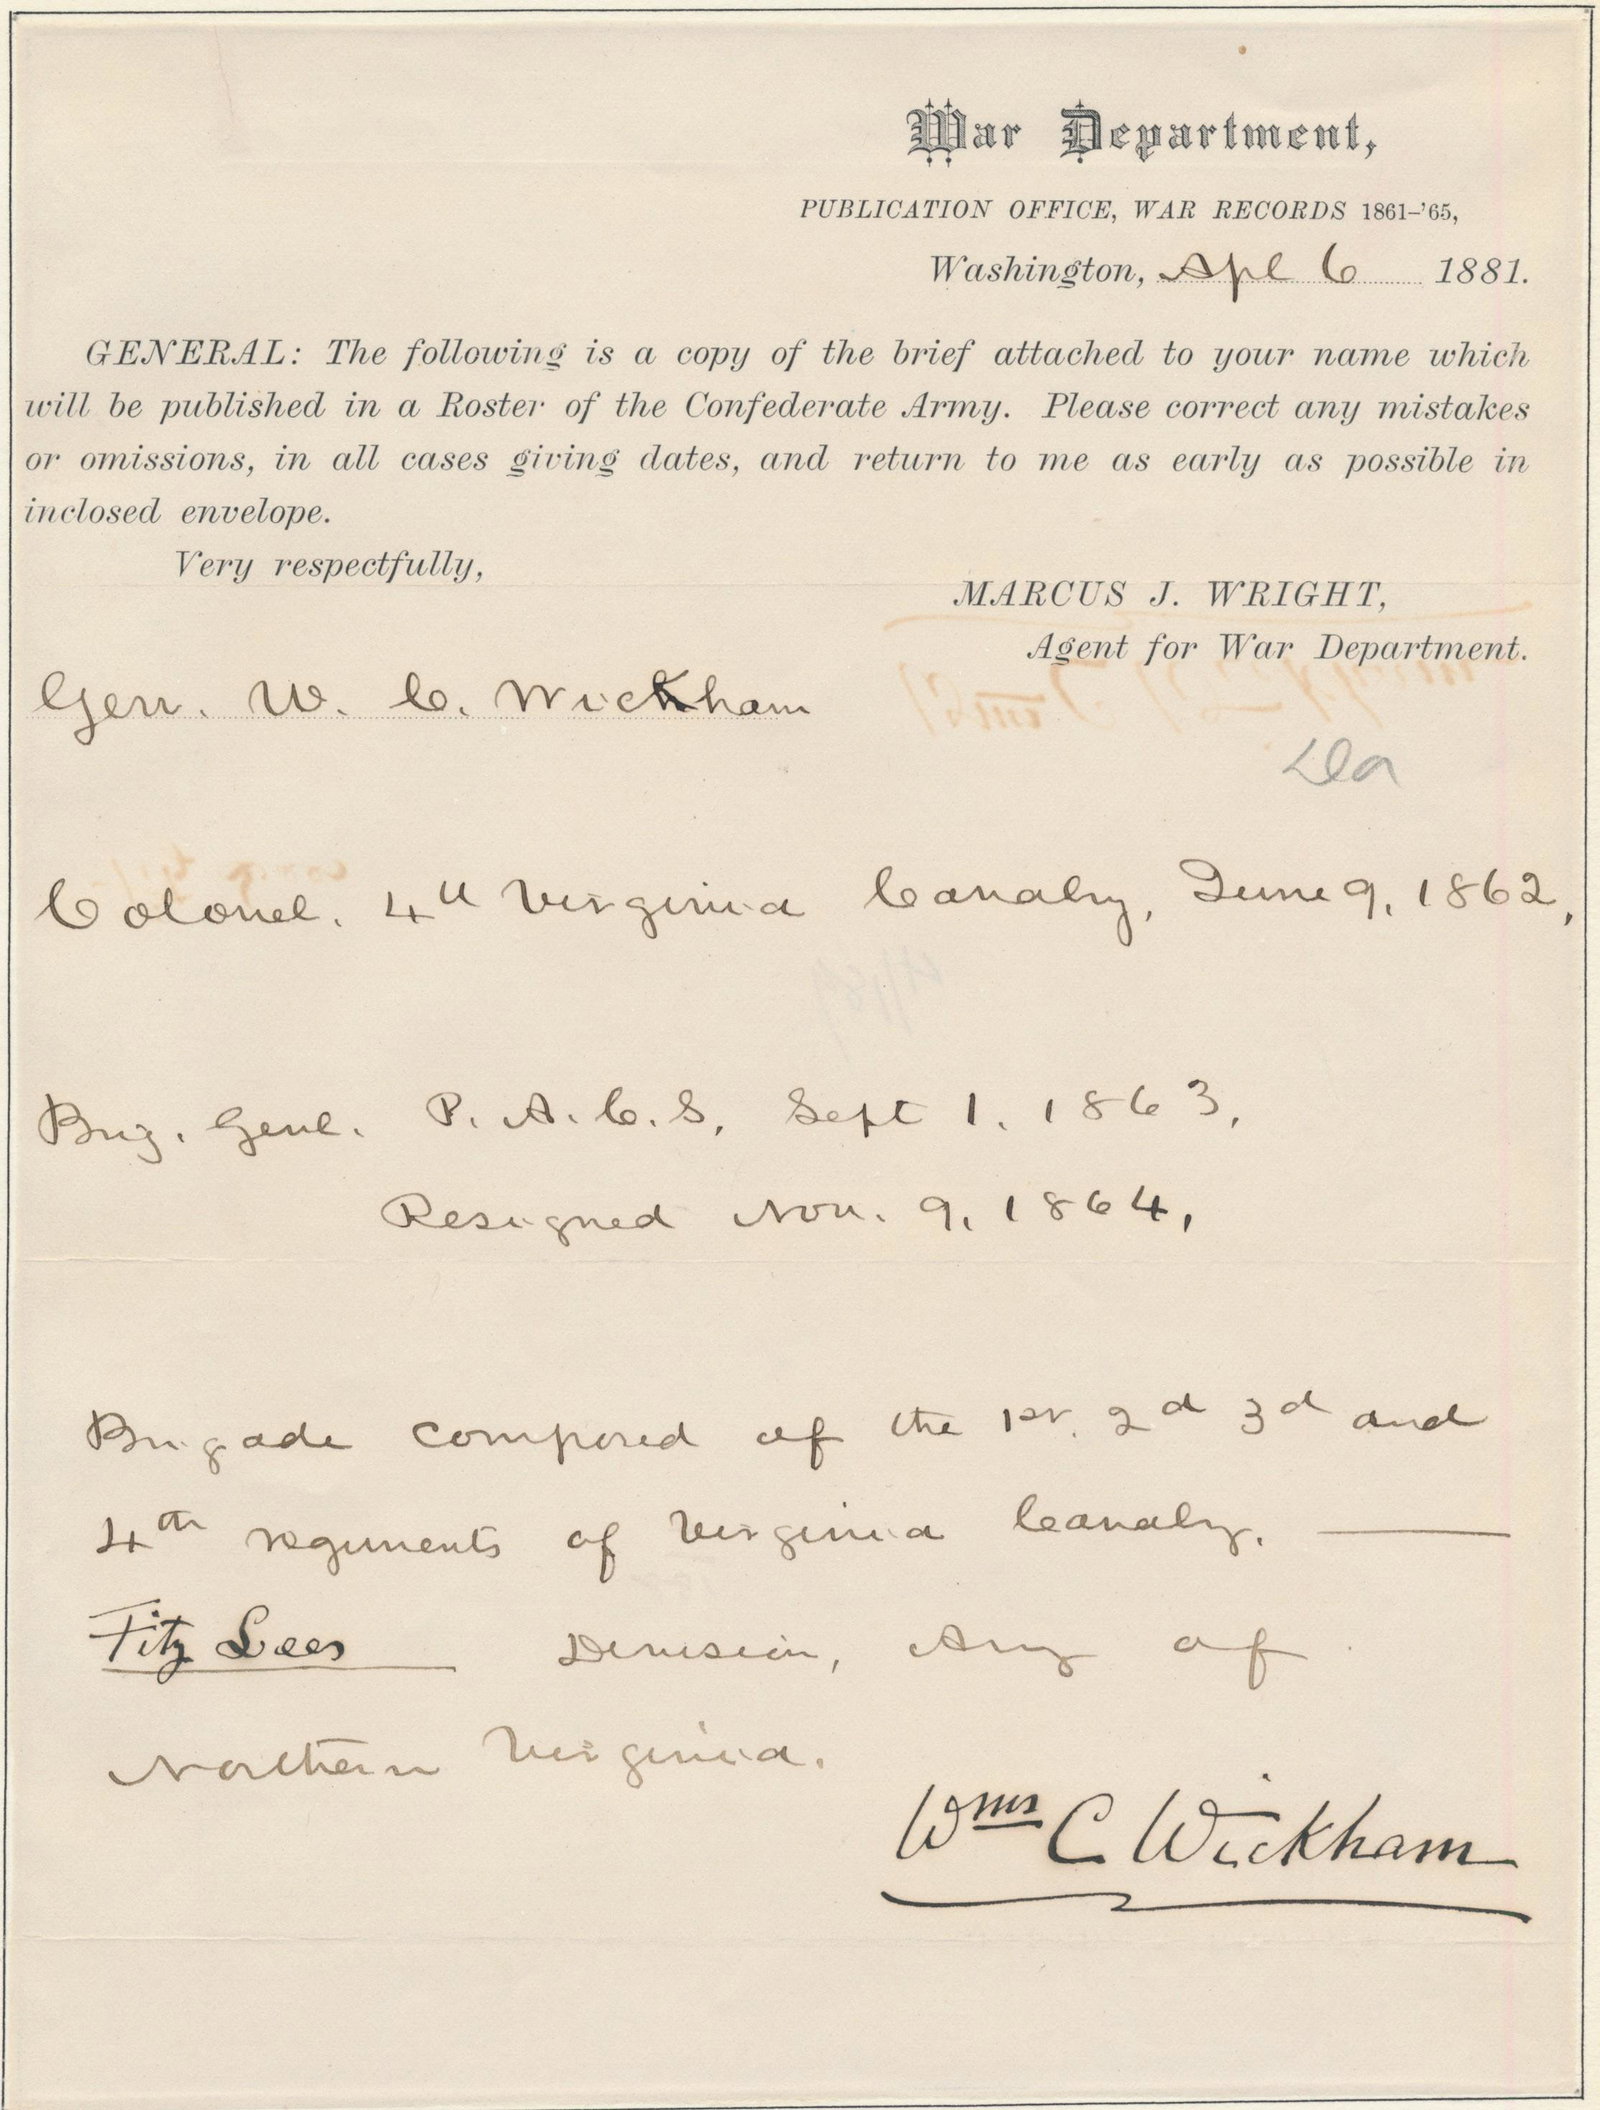 War Department,
PUBLICATION OFFICE, WAR RECORDS 1861–'65,
Washington, Apl 6 1881.
GENERAL: The following is a copy of the brief attached to your name which
will be published in a Roster of the Confederate Army. Please correct any mistakes
or omissions, in all cases giving dates, and return to me as early as possible in
inclosed envelope.
Very respectfully,
MARCUS J. WRIGHT,
Agent for War Department.
Gen. W. C. Wickham
Colonel. 4th Virginia Cavalry, June 9, 1862,
Brig. Genl. P. A. C. S, Sept 1, 1863,
Resigned Nov. 9, 1864,
Brigade composed of the 1st. 2d 3d and
4th regiments of Virginia Cavalry. ———
Fitz Lees Division, Army of
Northern Virginia.
Wms C Wickham